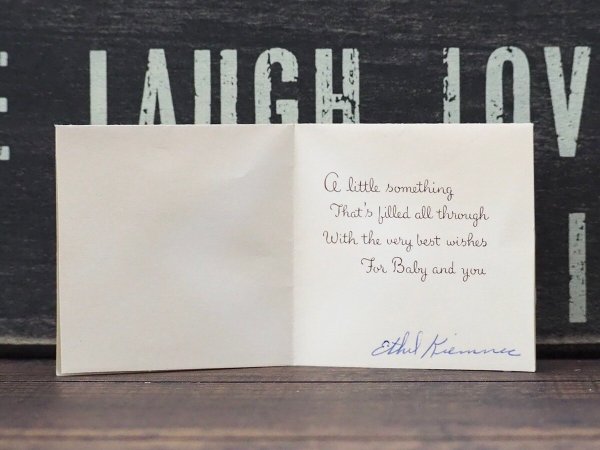 LAUGH LOV
A little something
That's filled all through
With the very best wishes
For Baby and you
Ethel